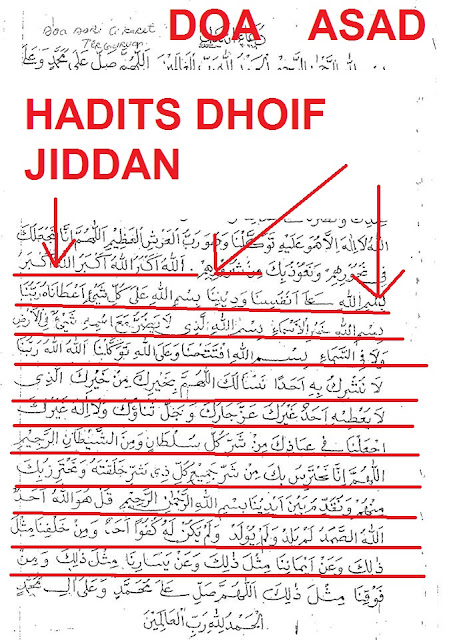 DOA ASAD
الرحمن الرحيم الحمد لله رب العالمين اللهم صل على محمد وعلى
HADITS DHOIF
JIDDAN
الله لا اله الا هو عليه توكلنا وهو رب العرش العظيم اللهم انا نجعلك
في نحورهم ونعوذبك من شرورهم الله اكبر الله اكبر الله اكبر
بسم الله على انفسنا وديننا بسم الله على كل شيئ اعطاناه ربنا
بسم الله خير الأسماء بسم الله الذى لا يضر مع اسمه شيئ في الأرض
ولا في السماء بسم الله افتتحنا وعلى الله توكلنا الله الله ربنا
لا نشرك به احدا نسألك اللهم بخيرك من خيرك الذى
لا يعطيه احد غيرك عز جارك وجل ثناؤك ولا اله غيرك
اجعلنا في عياذك من شر كل سلطان ومن الشيطان الرجيم
اللهم انا نحترس بك من شر جميع كل ذى شر خلقته ونحترز بك
منهم ونقدم بين ايدينا بسم الله الرحمن الرحيم قل هو الله احد
الله الصمد لم يلد ولم يولد ولم يكن له كفوا احد ومن خلفنا مثل
ذلك وعن ايماننا مثل ذلك وعن يسارنا مثل ذلك ومن
فوقنا مثل ذلك اللهم صل على محمد وعلى ال محمد
الحمد لله رب العالمين